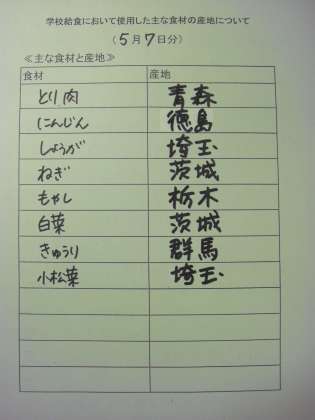 学校給食において使用した主な食材の産地について
(5月7日分)
≪主な食材と産地≫
食材 産地
とり肉 青森
にんじん 徳島
しょうが 埼玉
ねぎ 茨城
もやし 栃木
白菜 茨城
きゅうり 群馬
小松菜 埼玉